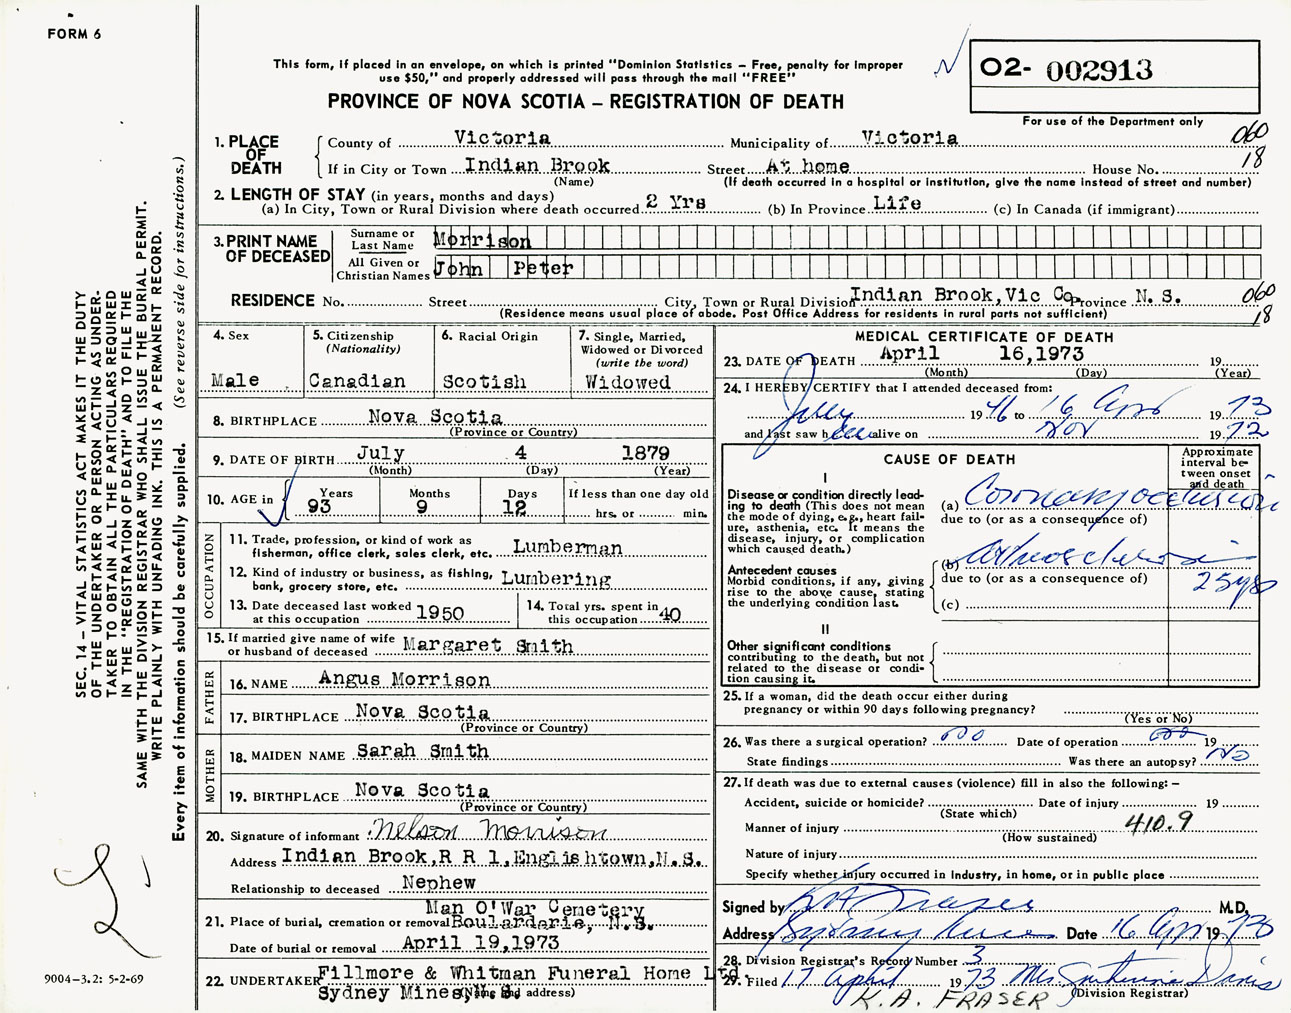 FORM 6
This form, if placed in an envelope, on which is printed "Dominion Statistics – Free, penalty for improper
use $50," and properly addressed will pass through the mail "FREE"
PROVINCE OF NOVA SCOTIA – REGISTRATION OF DEATH
O2- 002913
For use of the Department only
1. PLACE OF DEATH County of Victoria Municipality of Victoria 060
If in City or Town Indian Brook Street At home House No. 18
(Name) (If death occurred in a hospital or institution, give the name instead of street and number)
2. LENGTH OF STAY (in years, months and days)
(a) In City, Town or Rural Division where death occurred 2 Yrs (b) In Province Life (c) In Canada (if immigrant)
3. PRINT NAME OF DECEASED Surname or Last Name Morrison
All Given or Christian Names John Peter
RESIDENCE No. Street City, Town or Rural Division Indian Brook, Vic Co. Province N. S. 060
(Residence means usual place of abode. Post Office Address for residents in rural parts not sufficient) 18
4. Sex
Male
5. Citizenship
(Nationality)
Canadian
6. Racial Origin
Scotish
7. Single, Married,
Widowed or Divorced
(write the word)
Widowed
8. BIRTHPLACE Nova Scotia
(Province or Country)
9. DATE OF BIRTH July 4 1879
(Month) (Day) (Year)
10. AGE in Years Months Days If less than one day old
93 9 12 hrs. or min.
OCCUPATION
11. Trade, profession, or kind of work as
fisherman, office clerk, sales clerk, etc. Lumberman
12. Kind of industry or business, as fishing,
bank, grocery store, etc. Lumbering
13. Date deceased last worked
at this occupation 1950
14. Total yrs. spent in
this occupation 40
15. If married give name of wife
or husband of deceased Margaret Smith
FATHER
16. NAME Angus Morrison
17. BIRTHPLACE Nova Scotia
(Province or Country)
MOTHER
18. MAIDEN NAME Sarah Smith
19. BIRTHPLACE Nova Scotia
(Province or Country)
20. Signature of informant Nelson Morrison
Address Indian Brook, R R 1, Englishtown, N.S.
Relationship to deceased Nephew
Man O'War Cemetery
21. Place of burial, cremation or removal Boularderie, N.S.
Date of burial or removal April 19, 1973
22. UNDERTAKER Fillmore & Whitman Funeral Home Ltd.
Sydney Mines, N.S. (Name and address)
MEDICAL CERTIFICATE OF DEATH
23. DATE OF DEATH April 16, 1973 19
(Month) (Day) (Year)
24. I HEREBY CERTIFY that I attended deceased from:
July 1946 to 16 Apr 1973
and last saw h alive on Nov 1972
CAUSE OF DEATH
Approximate
interval be-
tween onset
and death
I
Disease or condition directly lead-
ing to death (This does not mean
the mode of dying, e.g., heart fail-
ure, asthenia, etc. It means the
disease, injury, or complication
which caused death.)
(a) Coronary occlusion
due to (or as a consequence of)
Antecedent causes
Morbid conditions, if any, giving
rise to the above cause, stating
the underlying condition last.
(b) Arteriosclerosis
due to (or as a consequence of) 25 yrs
(c)
II
Other significant conditions
contributing to the death, but not
related to the disease or condi-
tion causing it.
25. If a woman, did the death occur either during
pregnancy or within 90 days following pregnancy?
(Yes or No)
26. Was there a surgical operation? no Date of operation 19
State findings Was there an autopsy? No
27. If death was due to external causes (violence) fill in also the following: –
Accident, suicide or homicide? Date of injury 19
(State which)
Manner of injury 410.9
(How sustained)
Nature of injury
Specify whether injury occurred in industry, in home, or in public place
Signed by Fraser M.D.
Address Sydney Mines Date 16 Apr 1973
28. Division Registrar's Record Number 3
29. Filed 17 April 1973 Mrs. Davis
K. A. FRASER (Division Registrar)
SEC. 14 – VITAL STATISTICS ACT MAKES IT THE DUTY
OF THE UNDERTAKER OR PERSON ACTING AS UNDER-
TAKER TO OBTAIN ALL THE PARTICULARS REQUIRED
IN THE "REGISTRATION OF DEATH" AND TO FILE THE
SAME WITH THE DIVISION REGISTRAR WHO SHALL ISSUE THE BURIAL PERMIT.
WRITE PLAINLY WITH UNFADING INK. THIS IS A PERMANENT RECORD.
Every item of information should be carefully supplied. (See reverse side for instructions.)
9004–3.2: 5-2-69